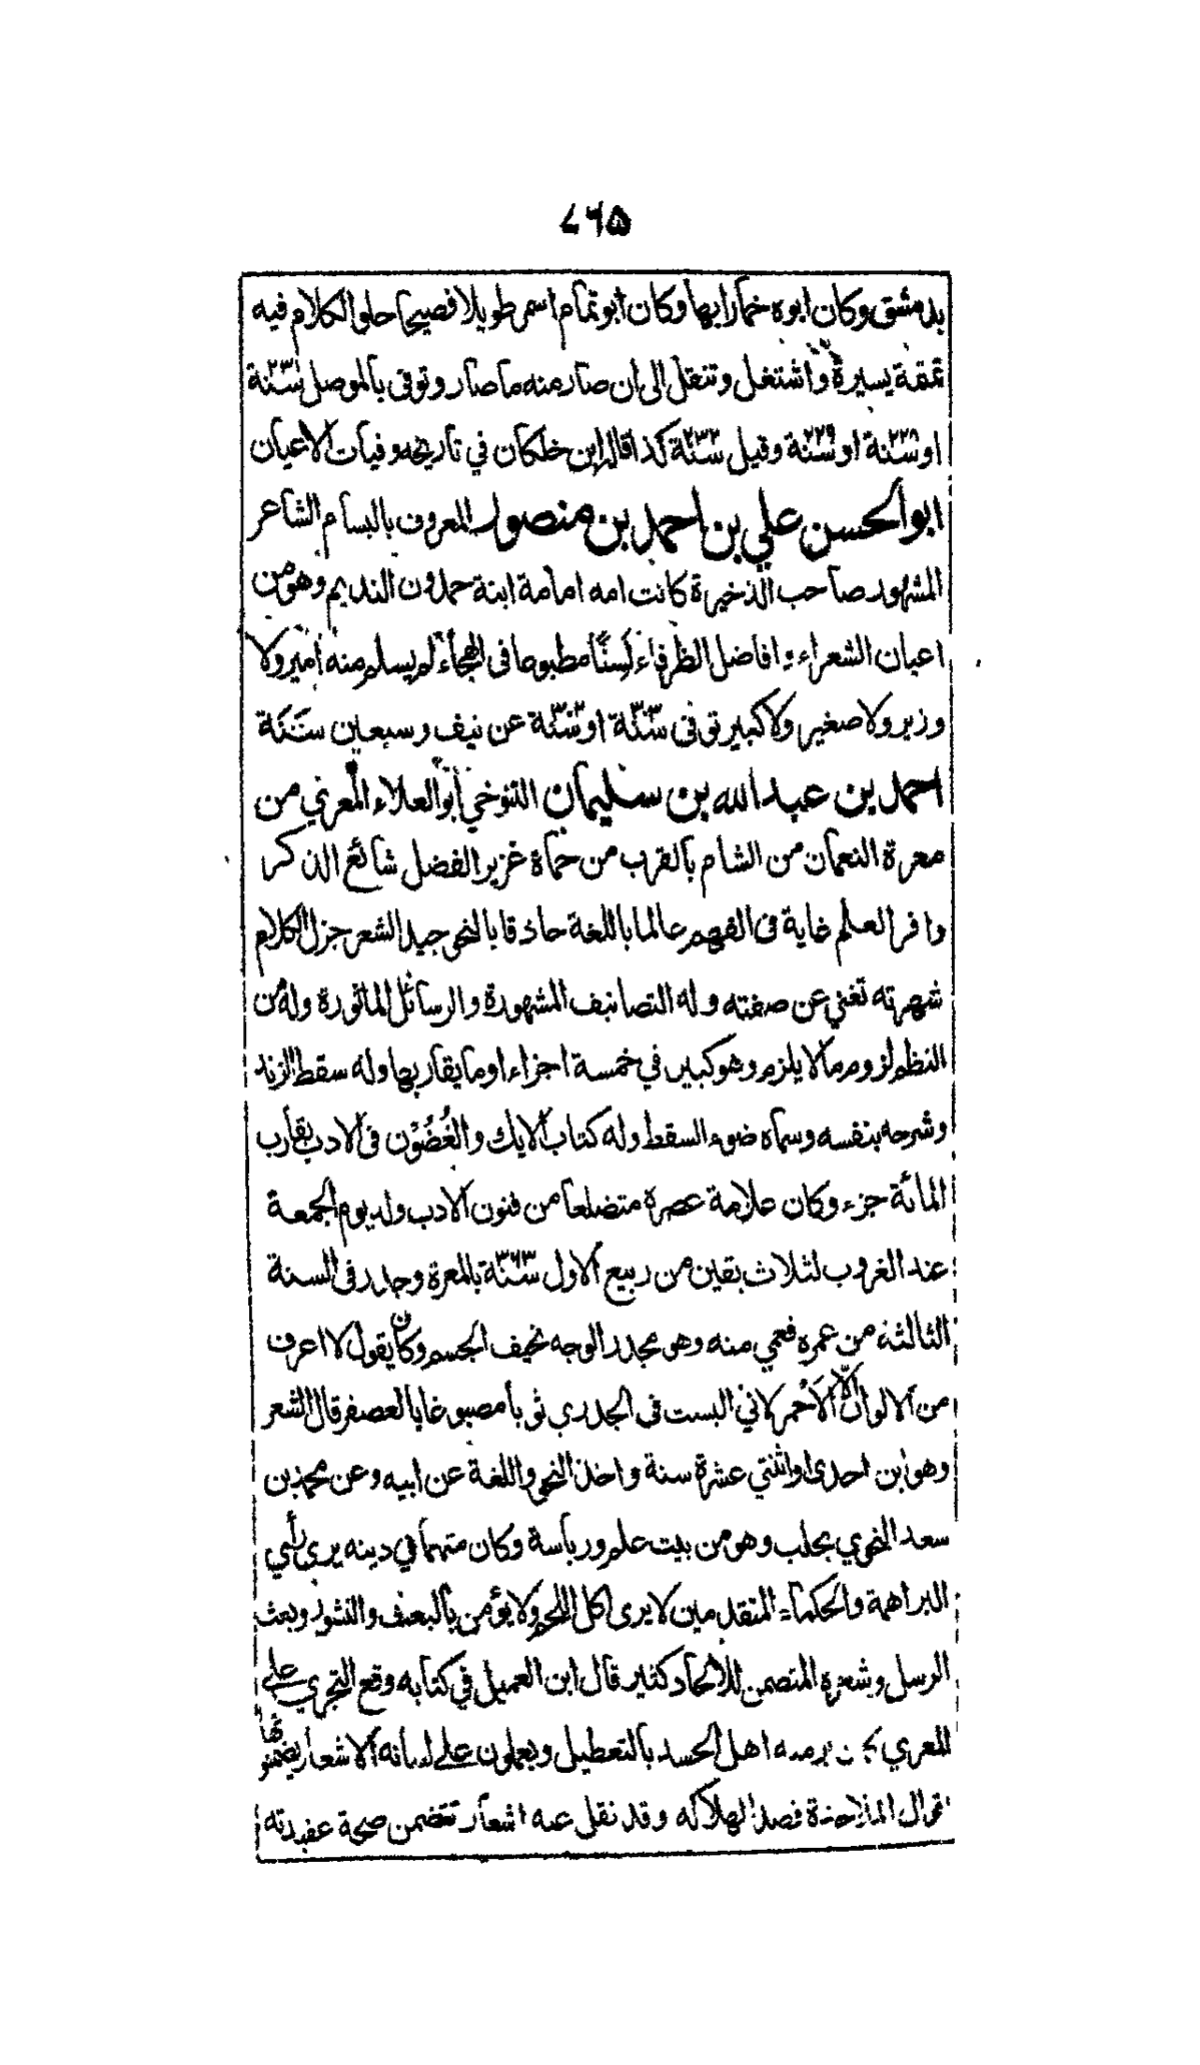 ٧٦٥
بدمشق وكان ابوه خمارا بها وكان ابو تمام اسمر طويلا فصيحا حلو الكلام فيه
تمتمة يسيرة واشتغل وتنقل الى ان صار منه ما صار وتوفي بالموصل سنة ٢٣١
او سنة ٢٢٨ او سنة ٢٢٩ وقيل سنة ٢٣٢ كذا قال ابن خلكان في تاريخه وفيات الاعيان
ابو الحسن علي بن احمد بن منصور المعروف بالبسام الشاعر
المشهور صاحب الذخيرة كانت امه امامة ابنة حمدون النديم وهو من
اعيان الشعراء وافاضل الظرفاء لسنًا مطبوعا فى الهجاء لم يسلم منه امير ولا
وزير ولا صغير ولا كبير توفى سنة او سنة عن نيف وسبعين سنة
احمد بن عبد الله بن سليمان التنوخي ابو العلاء المعري من
معرة النعمان من الشام بالقرب من حماة غزير الفضل شائع الذكر
وافر العلم غاية فى الفهم عالما باللغة حاذقا بالنحو جيد الشعر جزل الكلام
شهرته تغني عن صفته وله التصانيف المشهورة والرسائل الماثورة وله من
النظم لزوم ما لا يلزم وهو كبير في خمسة اجزاء او ما يقاربها وله سقط الزند
وشرحه بنفسه وسماه ضوء السقط وله كتاب الايك والغُصُوْن فى الادب يقارب
المائة جزء وكان علامة عصره متضلعا من فنون الادب ولد يوم الجمعة
عند الغروب لثلاث بقين من ربيع الاول سنة ٣٦٣ بالمعرة وجدر فى السنة
الثالثة من عمره فعمي منه وهو مجدر الوجه نحيف الجسم وكان يقول لا اعرف
من الالوان الّا الاَحْمر لاني البست فى الجدري ثوبا مصبوغا بالعصفر قال الشعر
وهو ابن احدى او اثنتي عشرة سنة واخذ النحو واللغة عن ابيه وعن محمد بن
سعد النحوي بحلب وهو من بيت علم ورياسة وكان متهما في دينه يرى رأي
البراهمة والحكماء المتقدمين لا يرى اكل اللحم ولا يؤمن بالبعث والنشور وبعث
الرسل وشعره المتضمن للالحاد كثير قال ابن العميل في كتابه وقع التجري على
المعري يرميه اهل الحسد بالتعطيل ويعملون على لسانه الاشعار يضمنونها
اقوال الملاحدة قصدا لهلاكه وقد نقل عنه اشعار تتضمن صحة عقيدته